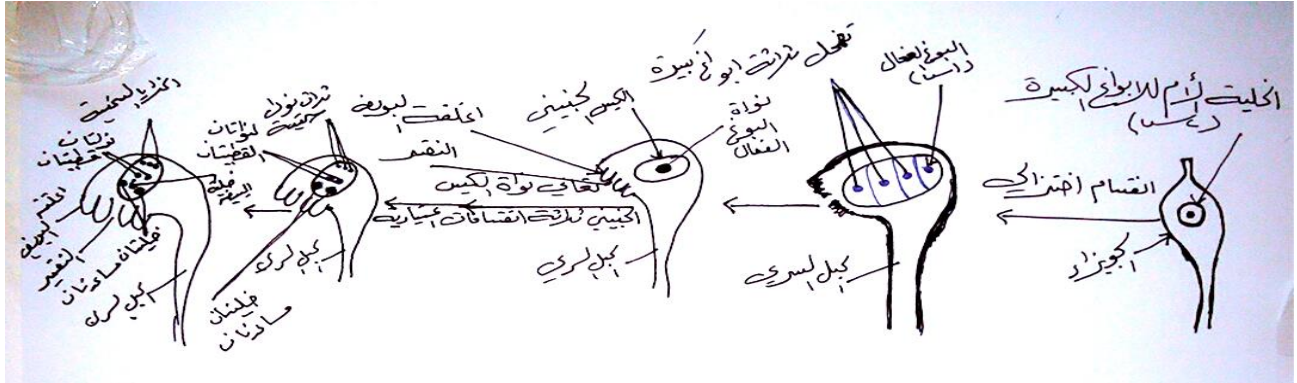 الخلية الأم للابواغ الكبيرة
(2س)
انقسام اختزالي
الجويزاء
البوغ الفعال
(1س)
تضمحل ثلاثة ابواغ كبيرة
الحبل السري
الكيس الجنيني
نواة
البوغ
الفعال
اغلفة البويض
النقير
تعاني نواة الكيس
الجنيني ثلاثة انقسامات اعتيادية
الحبل السري
ثلاث نوى
سمتية
النواتان
القطبيتان
الحبل السري
خليتان
مساعدتان
الخلايا السمتية
نواتان
قطبيتان
خلية
البيضة
اغلفة
البويض
النقير
خليتان مساعدتان
الحبل السري